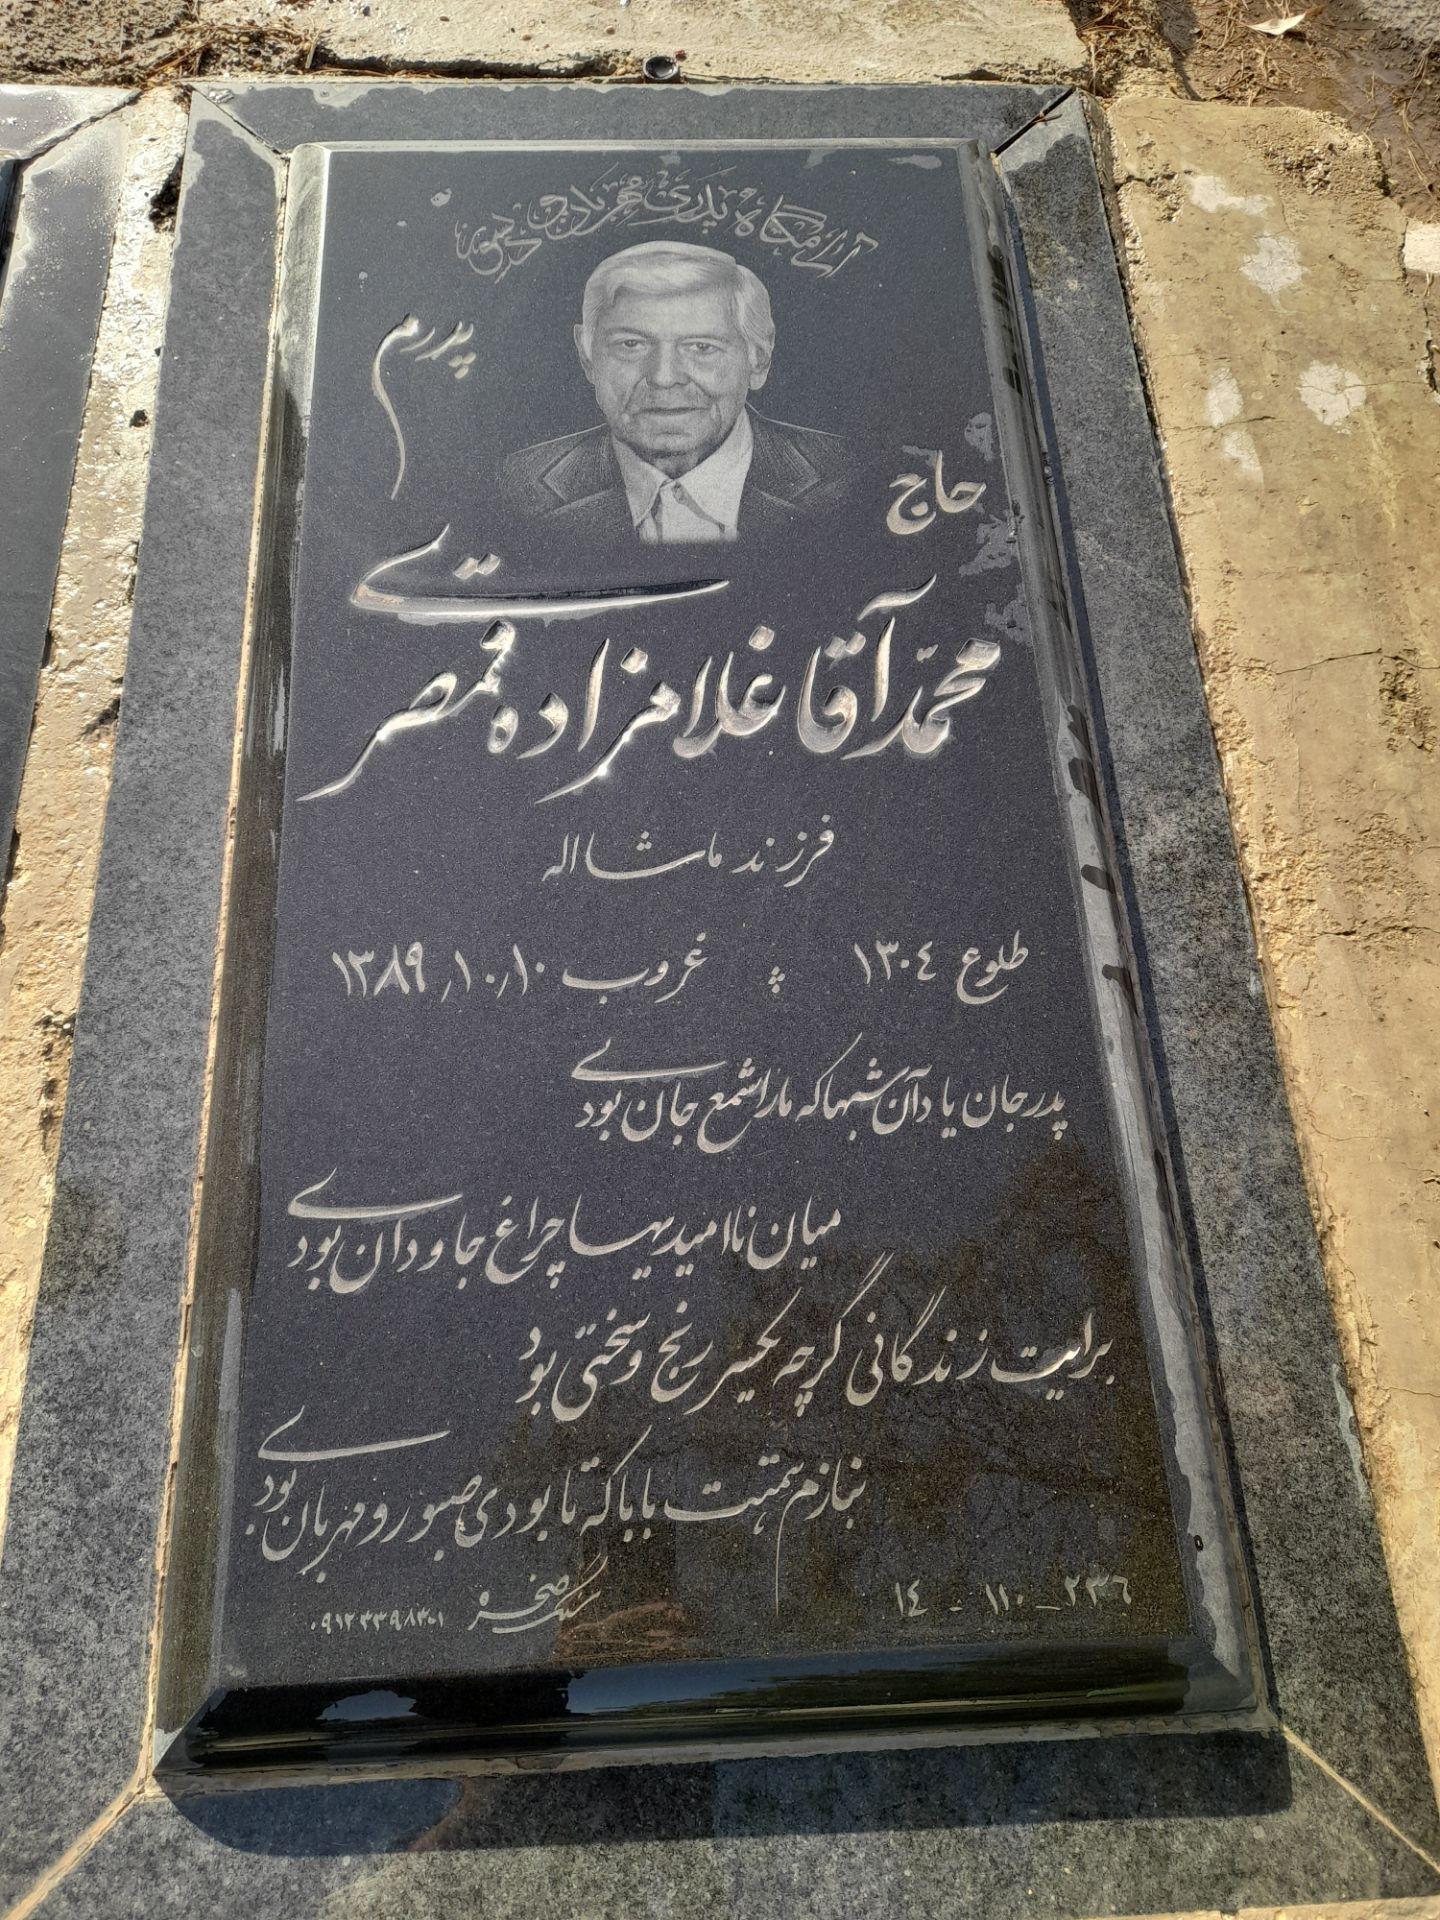 آرامگاه پدری مهربان و دلسوز
پدرم
حاج
محمّد آقا غلامزاده قمصری
فرزند ماشااله
طلوع ۱۳۰۴ غروب ۱۳۸۹٫۱۰٫۱۰
پدر جان یاد آن شبها که ما را شمع جان بودی
میان ناامیدیها چراغ جاودان بودی
برایت زندگانی گرچه یکسر رنج و سختی بود
بنازم همّتت بابا که تا بودی صبور و مهربان بودی
۲۳۶ - ۱۱۰ - ۱۴
سنگ صخره ۰۹۱۲۳۳۹۸۳۰۱